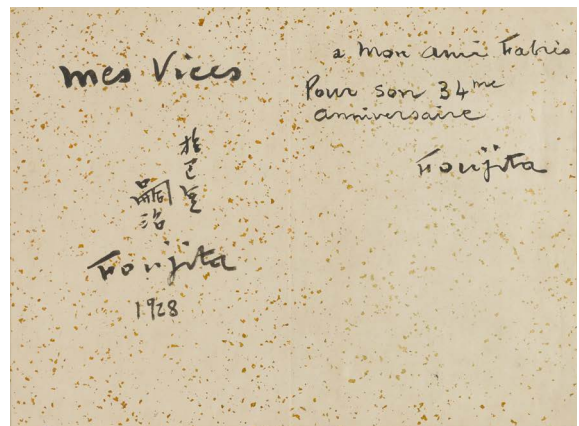 mes Vices
於巴里
嗣治
Foujita
1928
a mon ami
Pour son 34me
anniversaire
Foujita